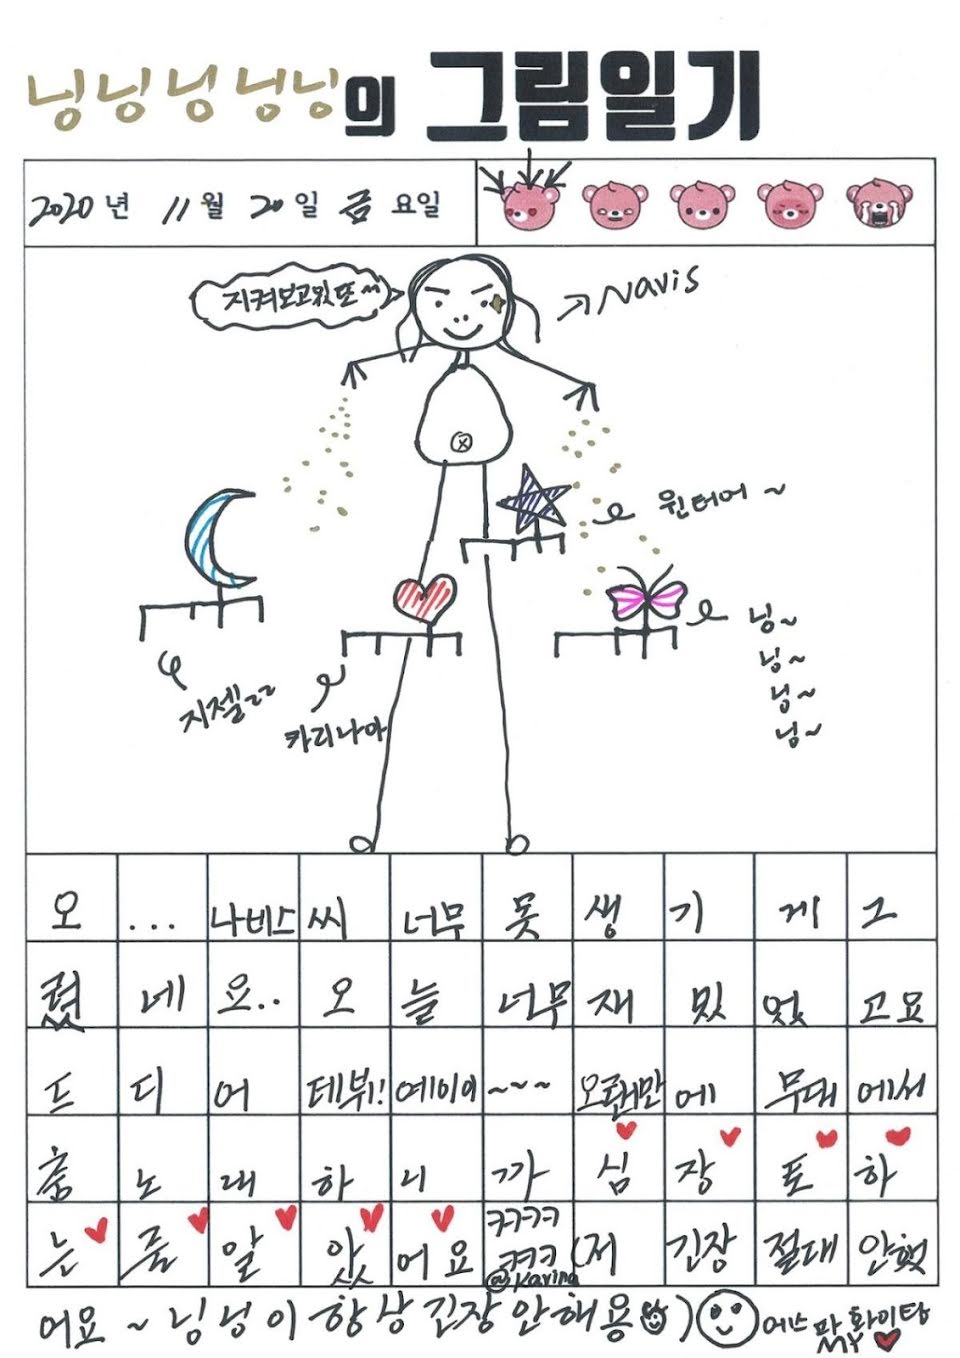 닝닝닝닝닝의 그림일기
2020년 11월 20일 금요일
지켜보고있또~
Navis
윈터어 ~
닝~
닝~
닝~
닝~
지젤ㄹㄹ
카리나아
오 ... 나비스 씨 너무 못 생 기 게 그
렸 네 요.. 오 늘 너무 재 밌 었 고요
드 디 어 데뷔! 에이이 ~~~ 오랜만 에 무대 에서
춤 노 래 하 니 까 심 장 토 하
는 줄 알 았 어요 ㅋㅋㅋㅋ ㅋㅋㅋ @Karina (저 긴장 절대 안했
어요 ~ 닝닝이 항상 긴장 안해용 ) MY